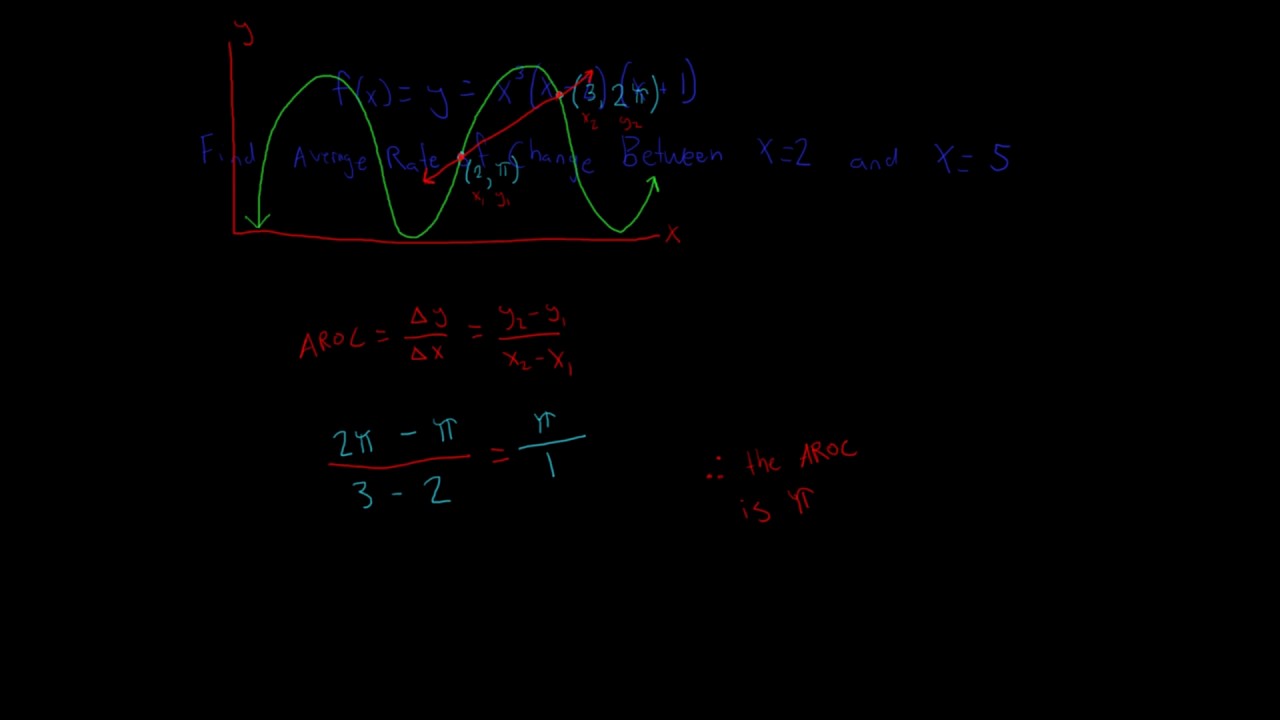 y
f(x) = y = x³(x - (3, 2π) + 1)
x₂ y₂
Find Average Rate of Change Between x=2 and x=5
(2, π)
x₁ y₁
x
AROC = Δy/Δx = y₂-y₁/x₂-x₁
2π - π/3 - 2 = π/1
∴ the AROC
is π